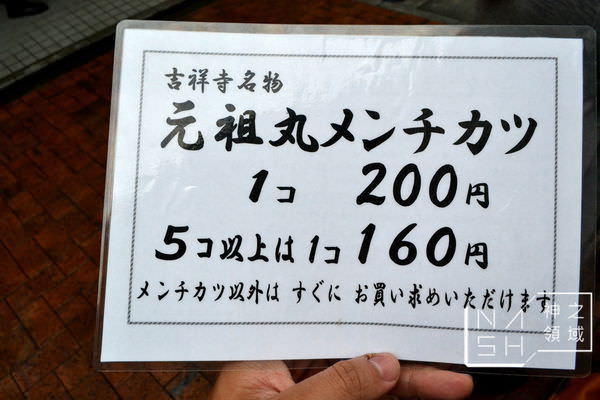 吉祥寺名物
元祖丸メンチカツ
1コ 200円
5コ以上は1コ160円
メンチカツ以外は すぐに お買い求めいただけます
NASH
神之領域